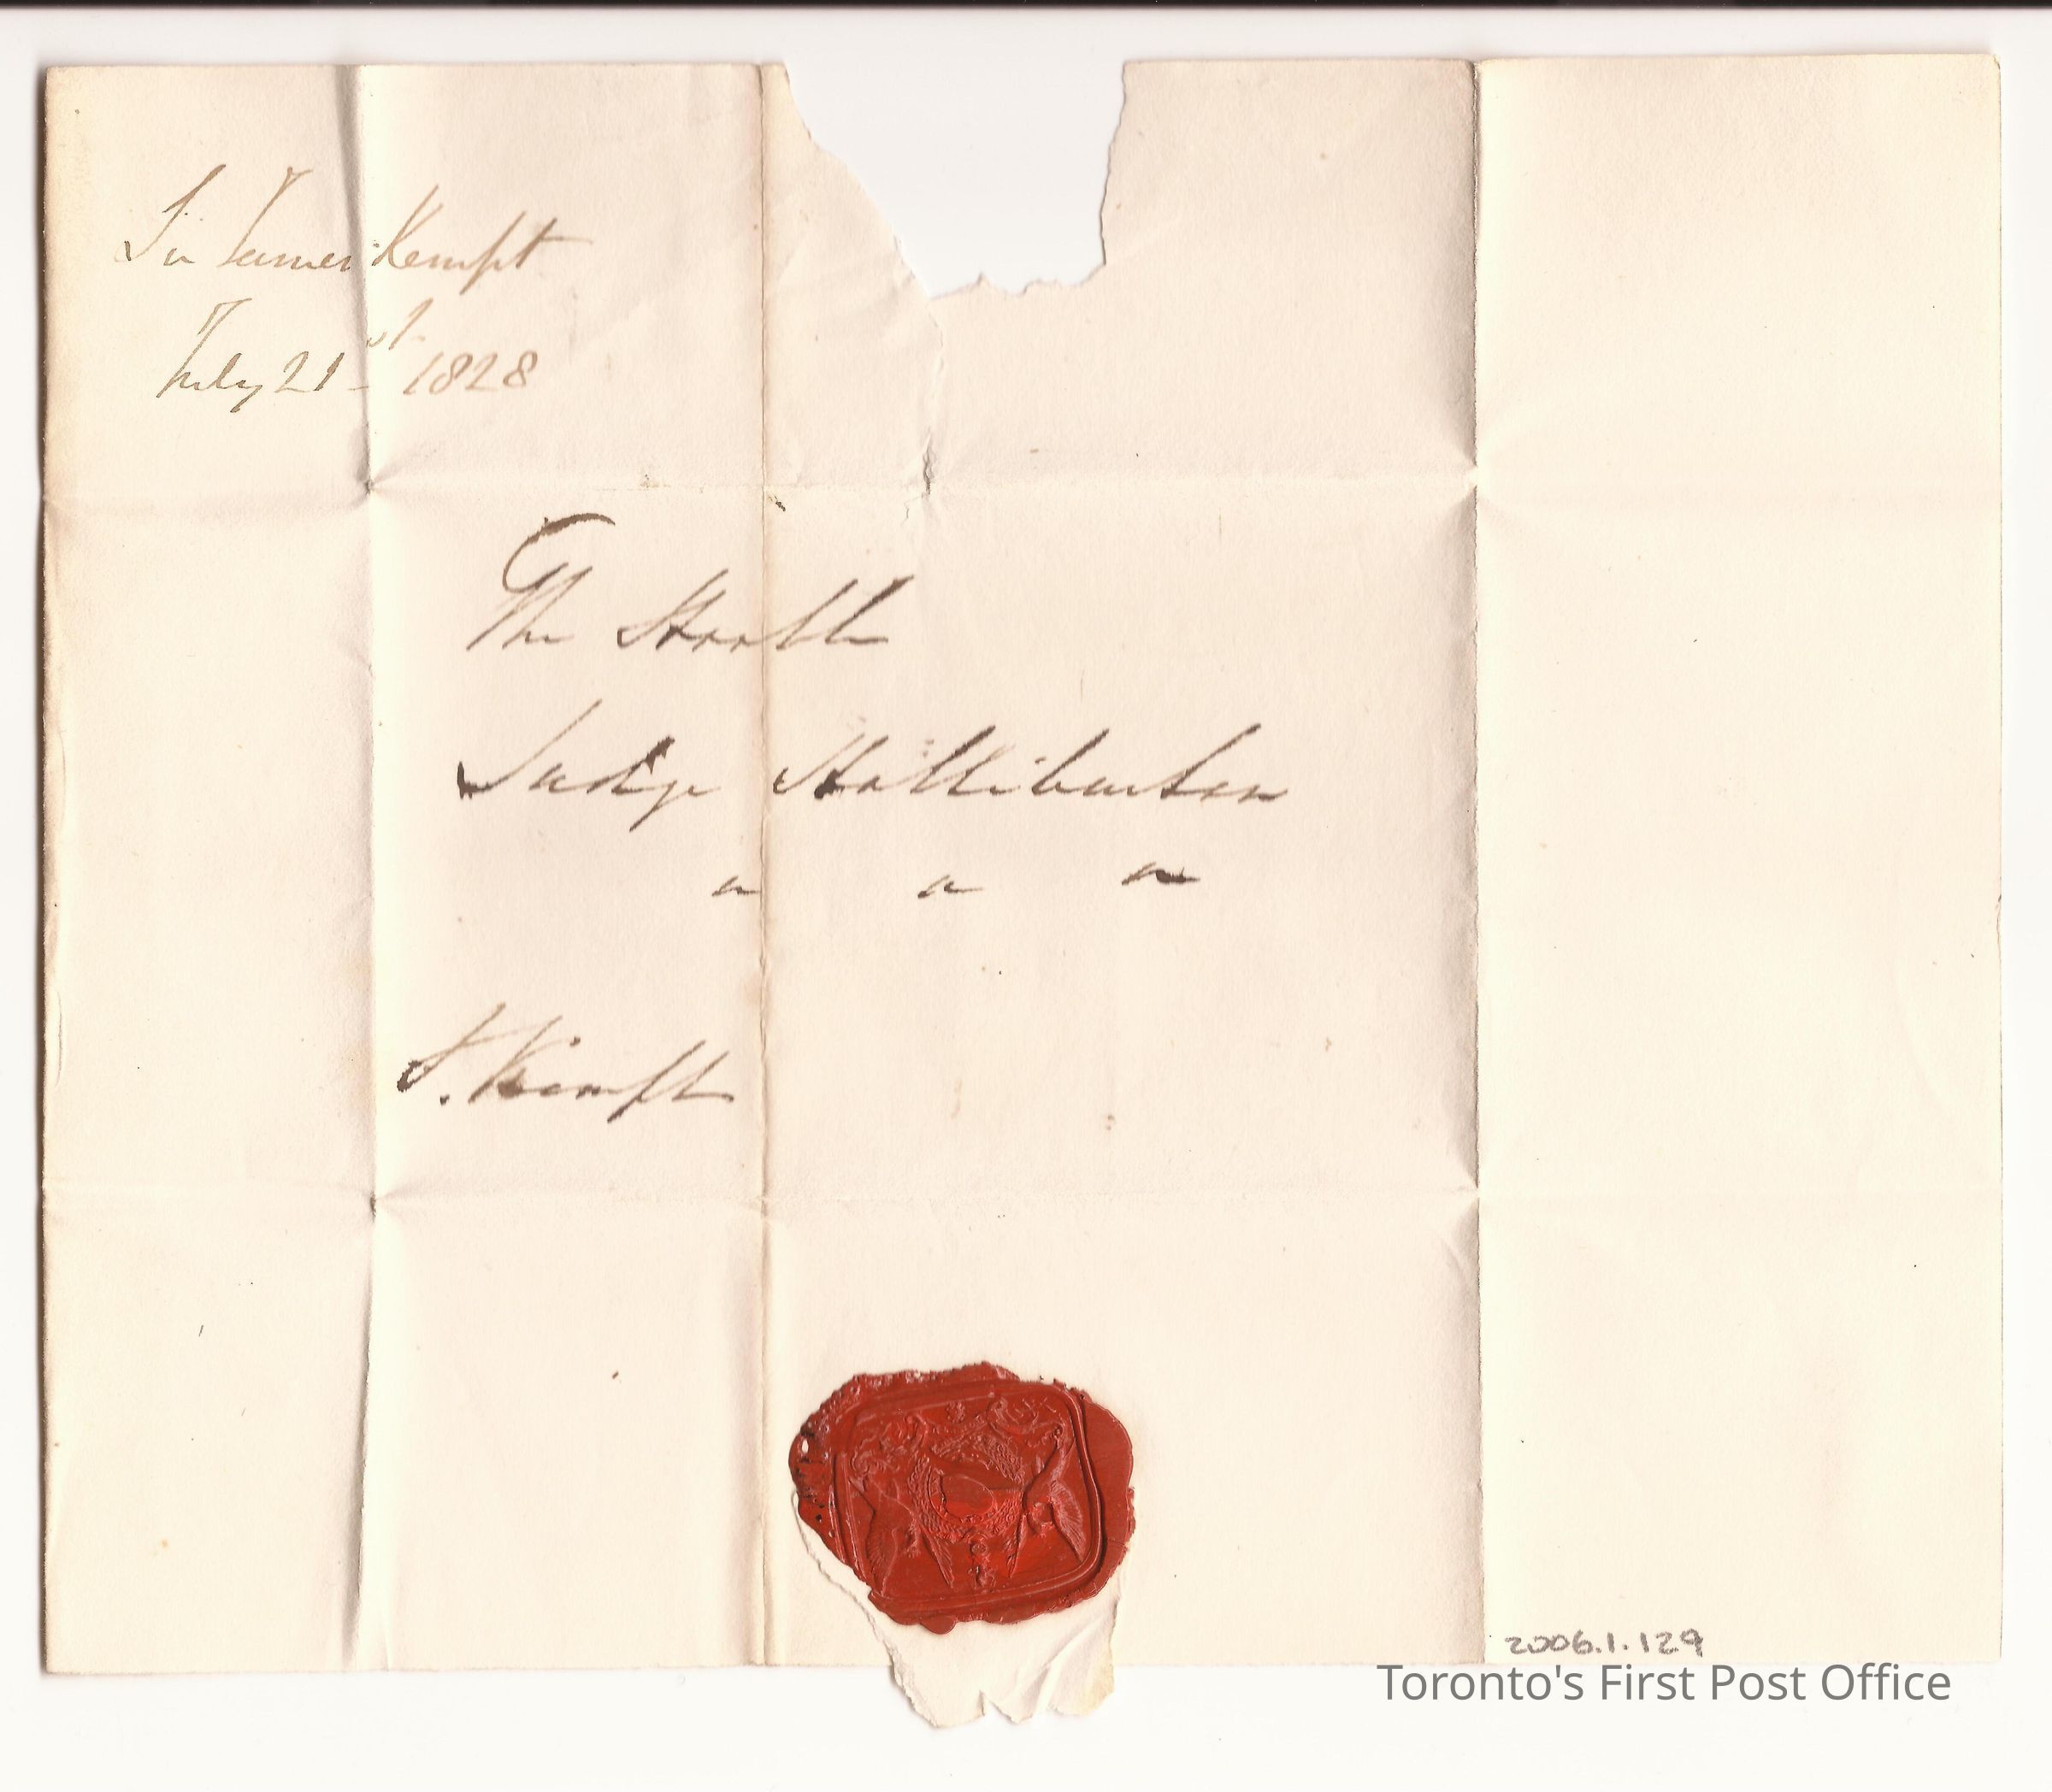 Sir James Kempt
July 21st 1828
The Honble
Judge Halliburton
J. Kempt
2006.1.129
Toronto's First Post Office